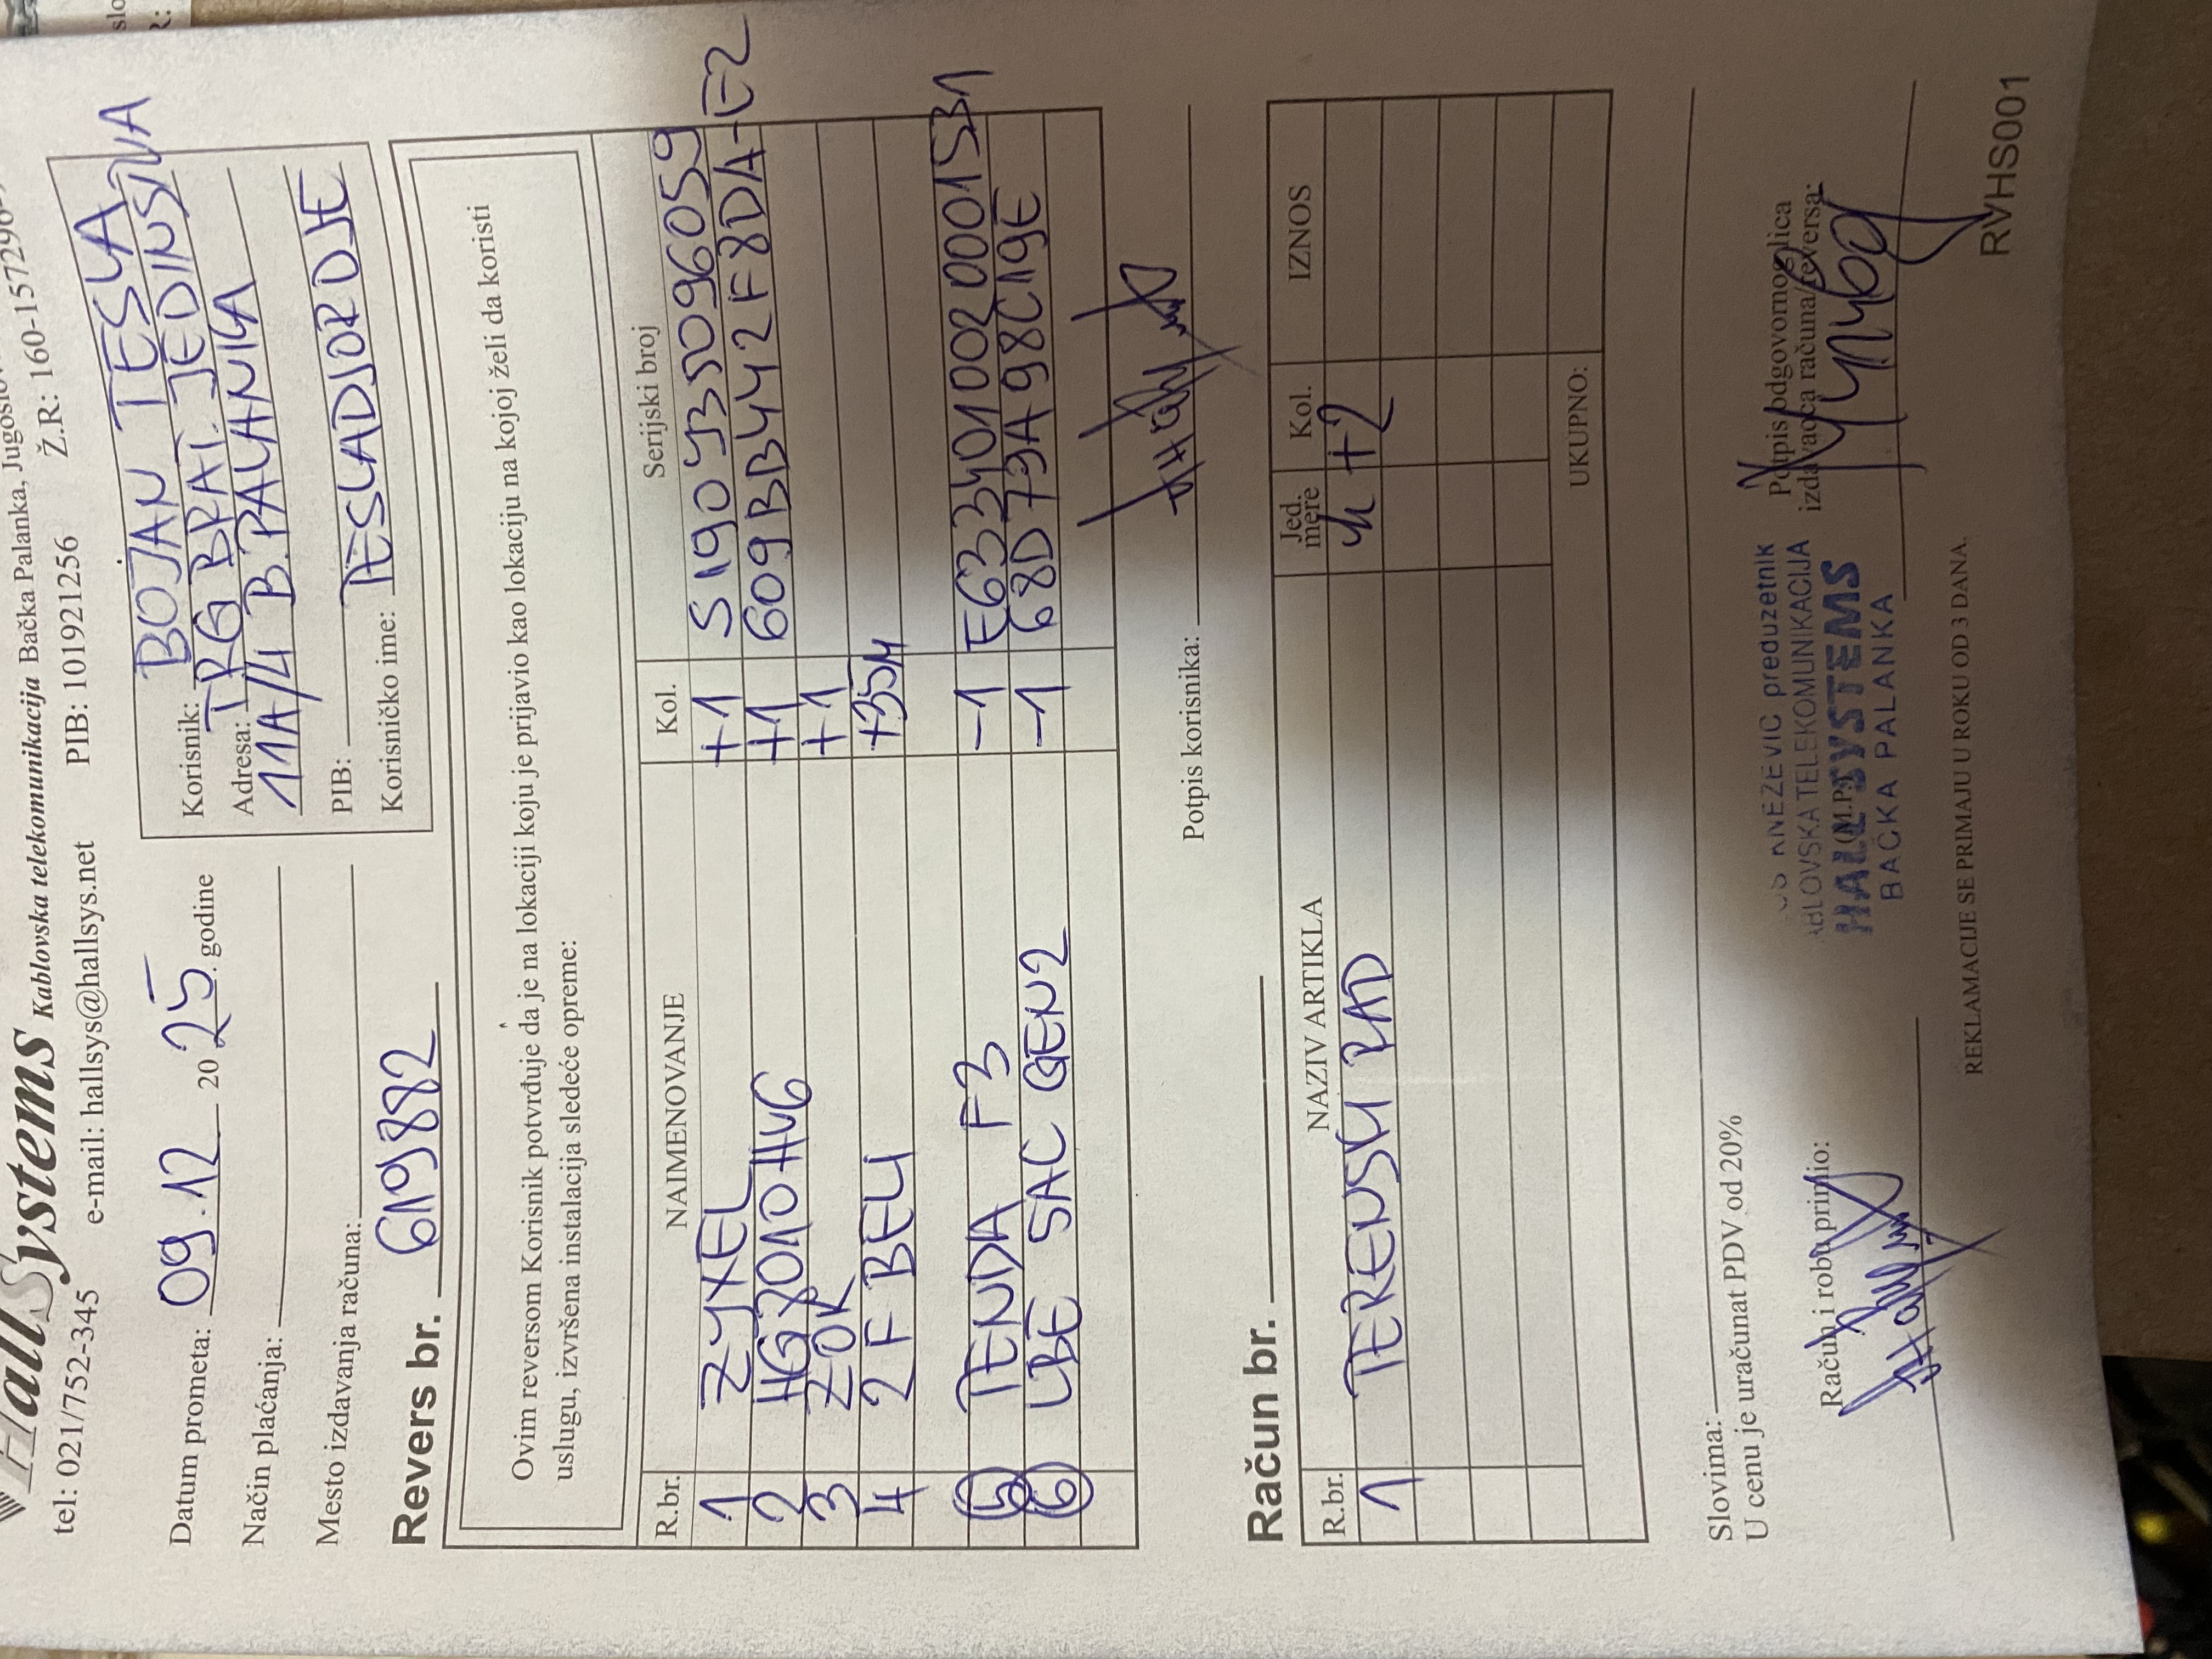 HallSystems Kablovska telekomunikacija Bačka Palanka,
tel: 021/752-345 e-mail: hallsys@hallsys.net PIB: 101921256 Ž.R: 160-157296-
Datum prometa: 09.12 20 25. godine
Način plaćanja:
Mesto izdavanja računa:
Korisnik: BOJAN TESLA
Adresa: TRG BRAT. JEDINSTVA
11A/4 B. PALANKA
PIB:
Korisničko ime: TESLADJORDJE
Revers br. 619882
Ovim reversom Korisnik potvrđuje da je na lokaciji koju je prijavio kao lokaciju na kojoj želi da koristi
uslugu, izvršena instalacija sledeće opreme:
R.br. NAIMENOVANJE Kol. Serijski broj
1 ZYXEL +1 S190Y35096059
2 HG8010HV6 +1 609BB442F8DA-E2
3 ZOK +1
4 2F BELI +35M
5 TENDA F3 -1 E6334010020001531
6 LBE 5AC GEN2 -1 68D79A98C19E
Potpis korisnika:
Račun br.
R.br. NAZIV ARTIKLA Jed. mere Kol. IZNOS
1 TERENSKI RAD h +2
UKUPNO:
Slovima:
U cenu je uračunat PDV od 20%
Račun i robu primio:
KNEZEVIC preduzetnik
KABLOVSKA TELEKOMUNIKACIJA
HALL SYSTEMS
BAČKA PALANKA
(M.P.)
Potpis odgovornog lica
izdavaoca računa/reversa:
REKLAMACIJE SE PRIMAJU U ROKU OD 3 DANA.
RVHS001